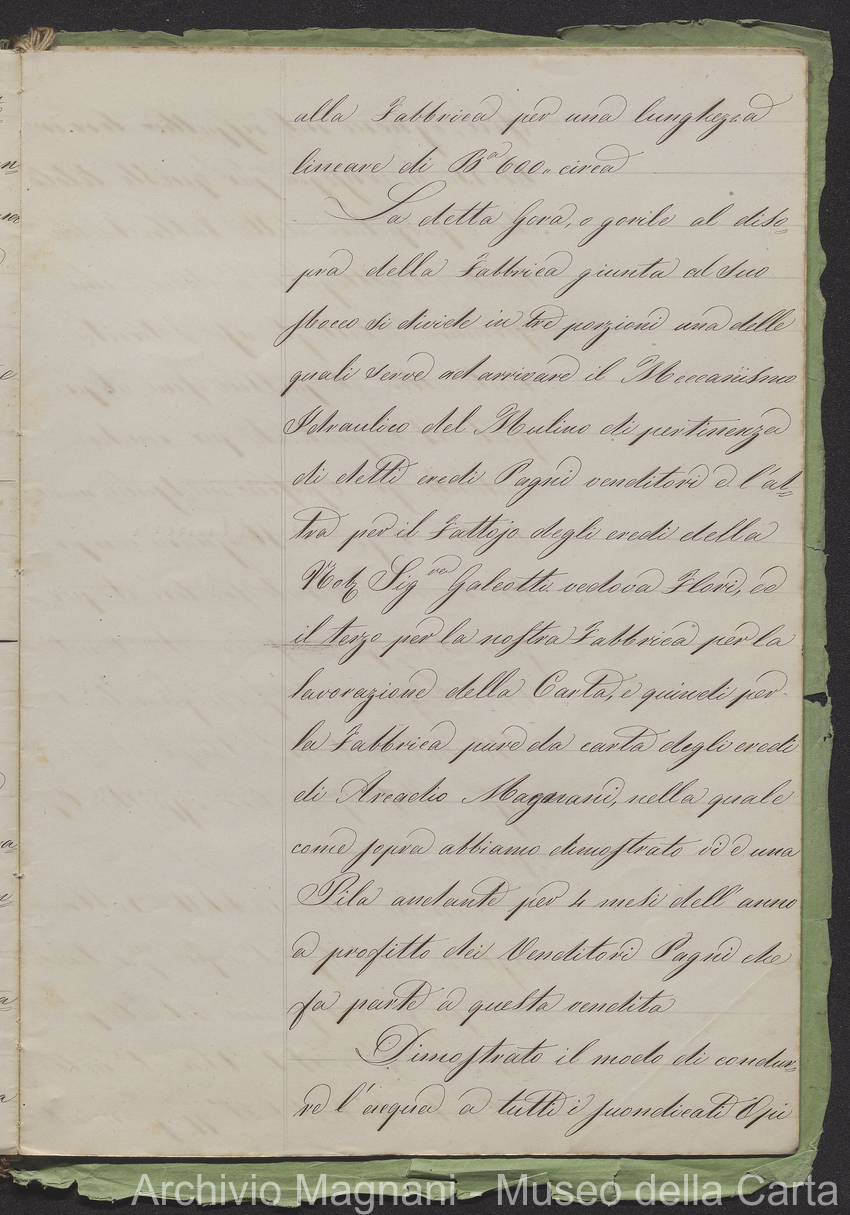 alla Fabbrica per una lunghezza
lineare di Bª 600,, circa
La detta Gora, o gorile al diso=
pra della Fabbrica giunta al suo
sbocco si divide in tre porzioni una delle
quali serve ad arrivare il Meccanismo
Idraulico del Mulino di pertinenza
di detti eredi Pagni venditori e l'al=
tra per il Fattojo degli eredi della
Sigra Galeotti vedova Flori, ed
il terzo per la nostra Fabbrica per la
lavorazione della Carta, e quindi per
la Fabbrica pure da carta degli eredi
di Arcadio Magnani, nella quale
come sopra abbiamo dimostrato vi è una
Pila andante per 4 mesi dell'anno
a profitto dei Venditori Pagni che
fa parte a questa vendita
Dimostrato il modo di condur=
re l'acqua a tutti i suondicati Opi
Archivio Magnani - Museo della Carta